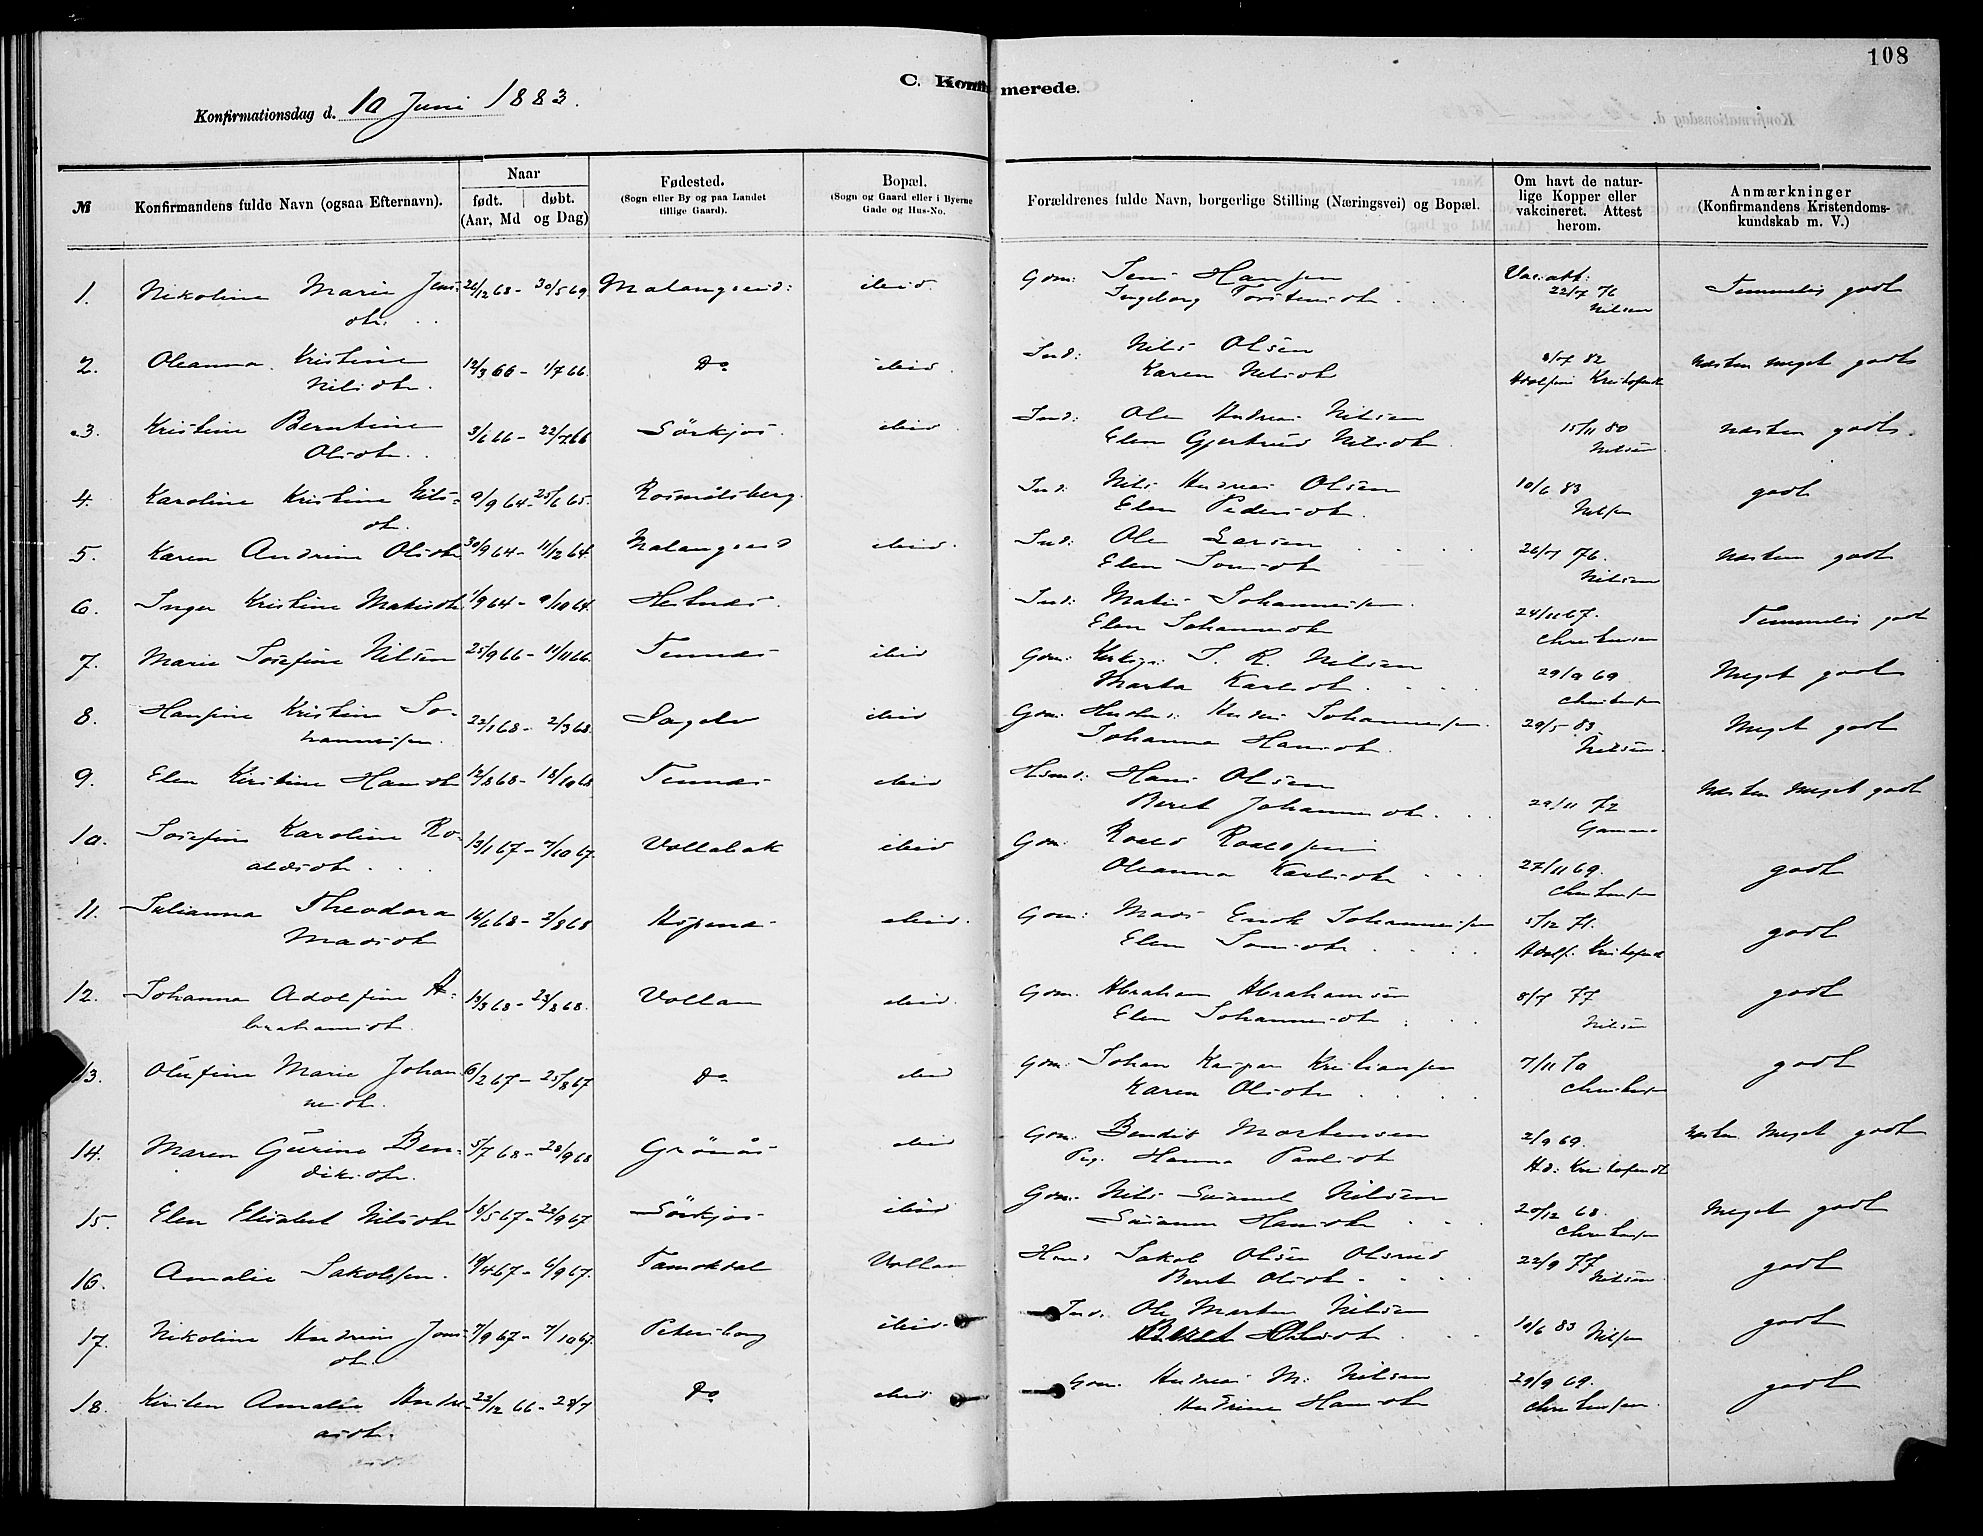 108
C. Konfirmerede.
Konfirmationsdag d. 10 Juni 1883.
№ Konfirmandens fulde Navn (ogsaa Efternavn). Naar født. døbt. (Aar, Md og Dag) Fødested. (Sogn eller By og paa Landet tillige Gaard). Bopæl. (Sogn og Gaard eller i Byerne Gade og Hus-No. Forældrenes fulde Navn, borgerlige Stilling (Næringsvei) og Bopæl. Om havt de naturlige Kopper eller vakcineret. Attest herom. Anmærkninger (Konfirmandens Kristendomskundskab m. V.)
1. Nikoline Marie Jens- 30/5 69 Malangseid: ibid. Gdm: Jens Hansen Vac: att: 22/7 76 Temmelig godt
dtr. Ingeborg Torstensdtr. Nilsen
2. Oleanna Kristine 12/3 66 - 1/7 66. Do ibid. Ind: Nils Olsen 8/7 82 Næsten meget godt
Nilsdtr. Karen Nilsdtr
3. Kristine Berntine 3/6 66 - 22/7 66 Sörkjos. ibid. Ind: Ole Andreas Nilsen 15/11 80 Næsten godt.
Olsdtr. Elen Gjertrud Nilsdtr. Nilsen
4. Karoline Kristine Nils- 9/9 64 - 25/6 65. Rosmålsberg Ind: Nils Andreas Olsen 10/6 83 godt
dtr. Elen Pedersdtr. Nilsen
5. Karen Andrine Olsdtr 30/9 64 - 11/12 64. Malangseid ibid. Ind: Ole Larsen 26/7 76. Næsten godt
Elen Jonsdtr Nilsen
6. Inger Kristine Matisdtr 1/9 64 - 9/10 64. Ind: Matis Johannessen. 24/11 67. Temmelig godt
Elen Johannesdtr Christensen
7. Marie Josefine Nilsen 25/9 66 - 11/11 66. Tennes ibid Gdm: J. R. Nilsen 29/9 69 Meget godt
Marta Karlsdtr. Christensen
8. Hansine Kristine Jo- 22/1 68 - 2/3 68. Sagelv ibid Gdm: Johannessen. 29/5 83 Meget godt
hannessen. Johanna Hansdtr. Nilsen.
9. Elen Kirstine Hansdtr 12/8 68 - 18/10 68 Tennes ibid Hans Olsen 29/11 72 Næsten meget godt
Beret Johannesdtr.
10. Josefine Karoline Ro- 13/1 67 - 7/10 67. Vollabak ibid Gdm: Roald Roaldsen 27/11 69. godt
aldsdtr. Oleanna Karlsdtr Christensen
11. Julianna Theodora 14/6 68 - 2/8 68 ibid. Gdm: Mads Johannessen 5/12 71. godt
Madsdtr Elen Jonsdtr
12. Johanna Adolfine A- 13/3 68 - 23/8 68. Vollan ibid. Gdm: Abraham Abrahamsen 8/7 77 godt
brahamsdtr. Elen Johannesdtr Nilsen
13. Olufine Marie Johan- 6/2 67 - 25/8 67 Do ibid Gdm: Johan Kaspar Kristiansen 7/11 70 godt
nesdtr. Karen Olsdtr Christensen
14. Maren Gurine Ben- 5/7 68 - 20/9 68 Grönås ibid Gdm: Bendik Mortensen 2/9 69. Næsten meget godt
diksdtr. Pig. Hanna Paulsdtr
15. Elen Elisabet Nilsdtr 18/5 67 - 22/9 67 Sörkjos ibid Gdm. Nils Samuel Nilsen 20/12 68. Meget godt
Susanna Hansdtr Christensen
16. Amalie Jakobsen. 18/4 67 - 6/9 67. Tamokdal Vollan Jakob Olsen Olsrud 22/9 77 godt
Beret Olsdtr Nilsen
17. Nikoline Andrine Jons- 7/9 67 - 7/10 67. Petersborg ibid. Ind. Ole Martin Nilsen 10/6 83 Nilsen godt
dtr. Beret Olsdtr
18. Kirsten Amalie Andre- 23/12 66 - Do ibid Gdm: Andreas M. Nilsen 29/9 69. godt
asdtr. Andrine Hansdtr Christensen.